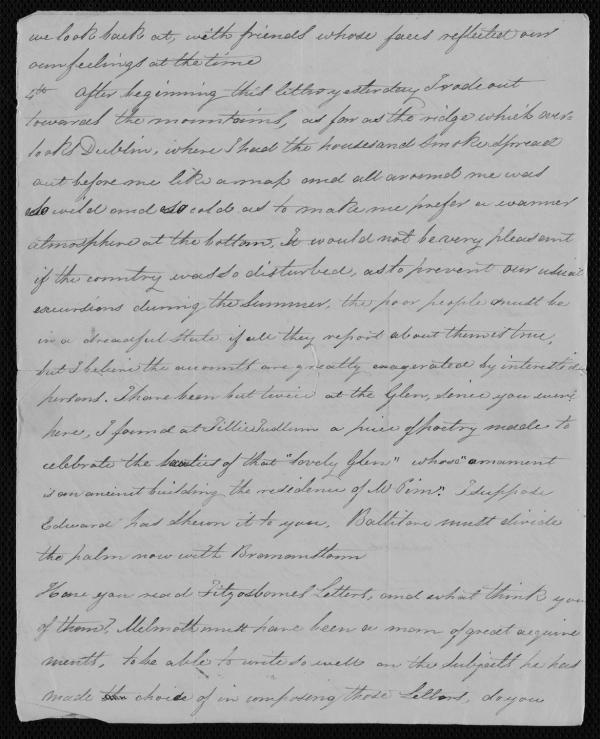 we look back at, with friends whose faces reflected our
own feelings at the time
4th After beginning this letter yesterday I rode out
towards the mountains, as far as the ridge which over-
looks Dublin, where I had the houses and smoke spread
out before me like a map and all around me was
so wild and so cold as to make me prefer a warmer
atmosphere at the bottom. It would not be very pleasant
if the country was so disturbed, as to prevent our usual
excursions during the Summer, the poor people must be
in a dreadful state if all they report about them is true,
but I believe the accounts are greatly exagerated by interested
persons. I have been but twice at the Glen, since you were
here, I found at Tillie Tudlum a piece of poetry made to
celebrate the beauties of that "lovely Glen" whose "ornament
is an ancient building the residence of Mr Pim". I suppose
Edward has shewn it to you. Baltilore must divide
the palm now with Bramanstown
Have you read Fitzosbornes Letters, and what think you
of them? Melmoth must have been a man of great acquire
ments, to be able to write so well on the subjects he has
made choice of in composing those Letters, do you